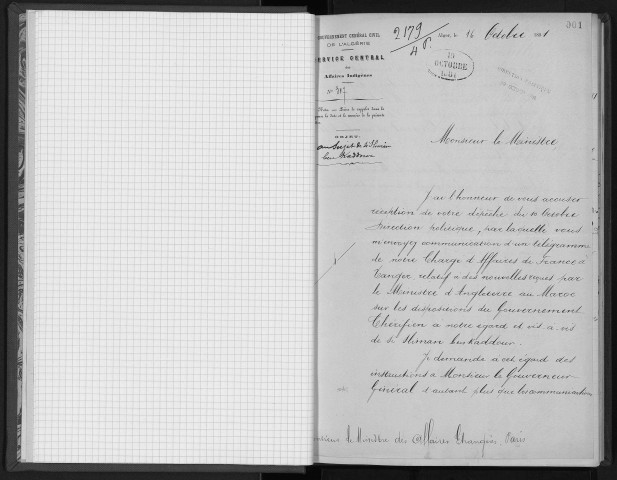 001
GOUVERNEMENT GÉNÉRAL CIVIL
DE L'ALGÉRIE
SERVICE CENTRAL
des
Affaires Indigènes
N° 317
OBJET:
au sujet de Si Sliman
ben Kaddour
2179
Alger, le 16 Octobre 1881
19
OCTOBRE
1881
Monsieur le Ministre
J'ai l'honneur de vous accuser
réception de votre dépêche du 10 Octobre
Direction politique, par laquelle vous
m'envoyez communication d'un télégramme
de notre Chargé d'Affaires de France à
Tanger relatif à des nouvelles reçues par
le Ministre d'Angleterre au Maroc
sur les dispositions du Gouvernement
Chérifien à notre égard et vis à vis
de Si Sliman ben Kaddour.
Je demande à cet égard des
instructions à Monsieur le Gouverneur
Général d'autant plus que les communications
Monsieur le Ministre des Affaires Etrangères. Paris